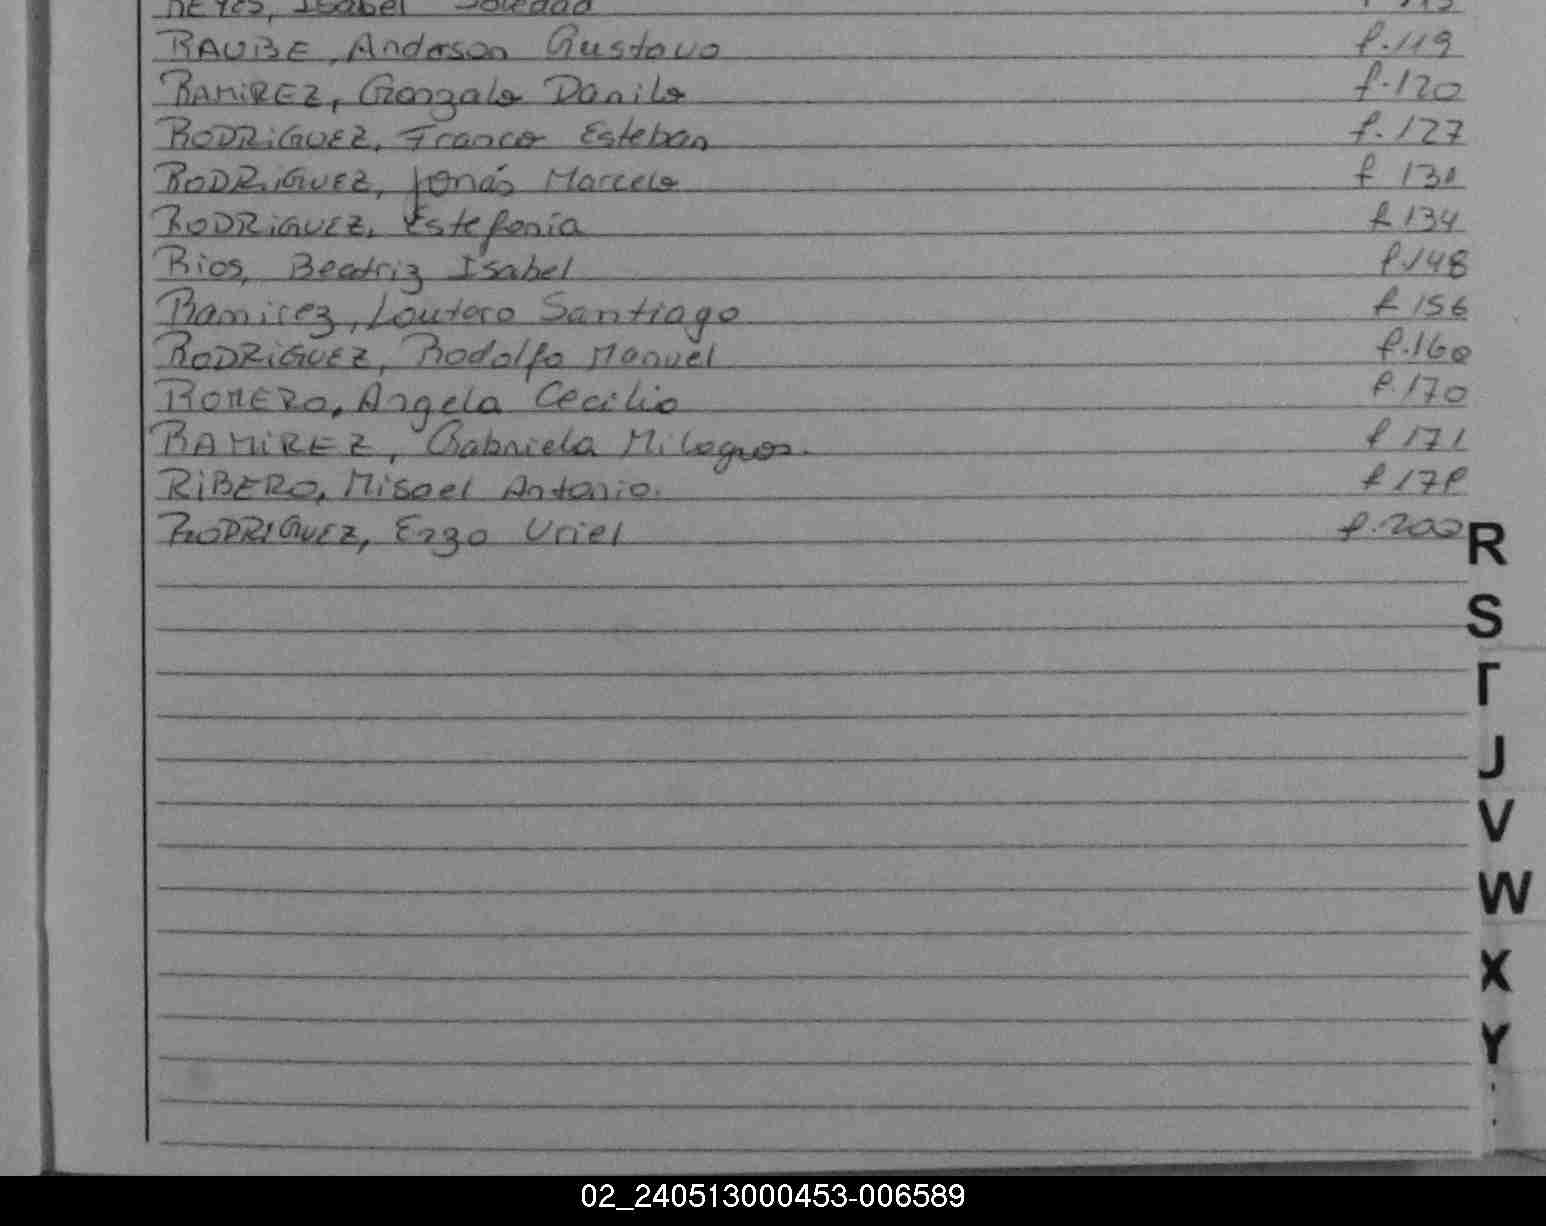 REYES, Isabel Soledad
RAUBE, Anderson Gustavo f.119
RAMIREZ, Gonzalo Danilo f.120
RODRIGUEZ, Franco Esteban f.127
RODRIGUEZ, Jonás Marcelo f 131
RODRIGUEZ, Estefania f 134
Rios, Beatriz Isabel f.148
Ramirez, Lautaro Santiago f 156
RODRIGUEZ, Rodolfo Manuel f.160
ROMERO, Angela Cecilia f.170
RAMIREZ, Gabriela Milagros. f 171
RIBERO, Misael Antonio.
RODRIGUEZ, Enzo Uriel f.200
R
S
T
J
V
W
X
Y
02_240513000453-006589